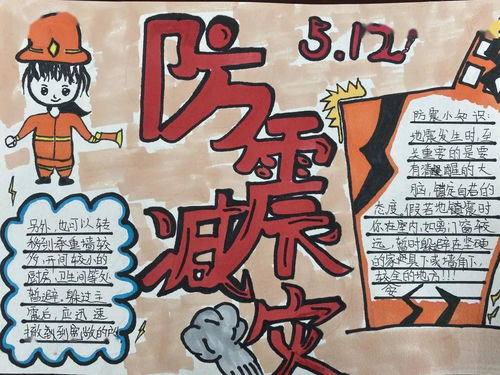 5.12
防震减灾
防震小知识:
地震发生时,至
关重要的是要
有清醒的大
脑,镇定自若的
态度,假若地震时
你在室内,如离门窗较
远,暂时躲避在坚硬
的家具下或墙角,
较全的地方!!!
安
另外,也可以转
移到承重墙较
多,开间较小的
厨房,卫生间等处
暂避,躲过主
震后,应迅速
撤到